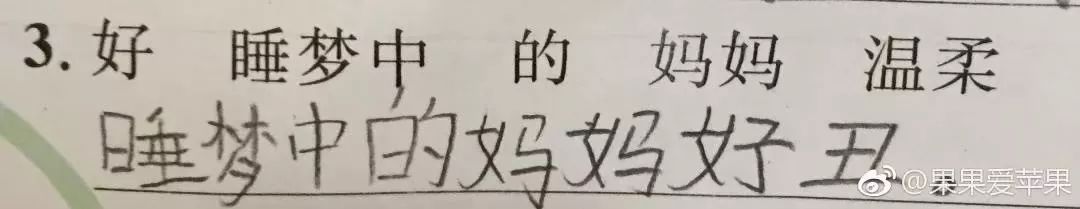 3. 好 睡梦中 的 妈妈 温柔
睡梦中的妈妈好丑。
@果果爱苹果